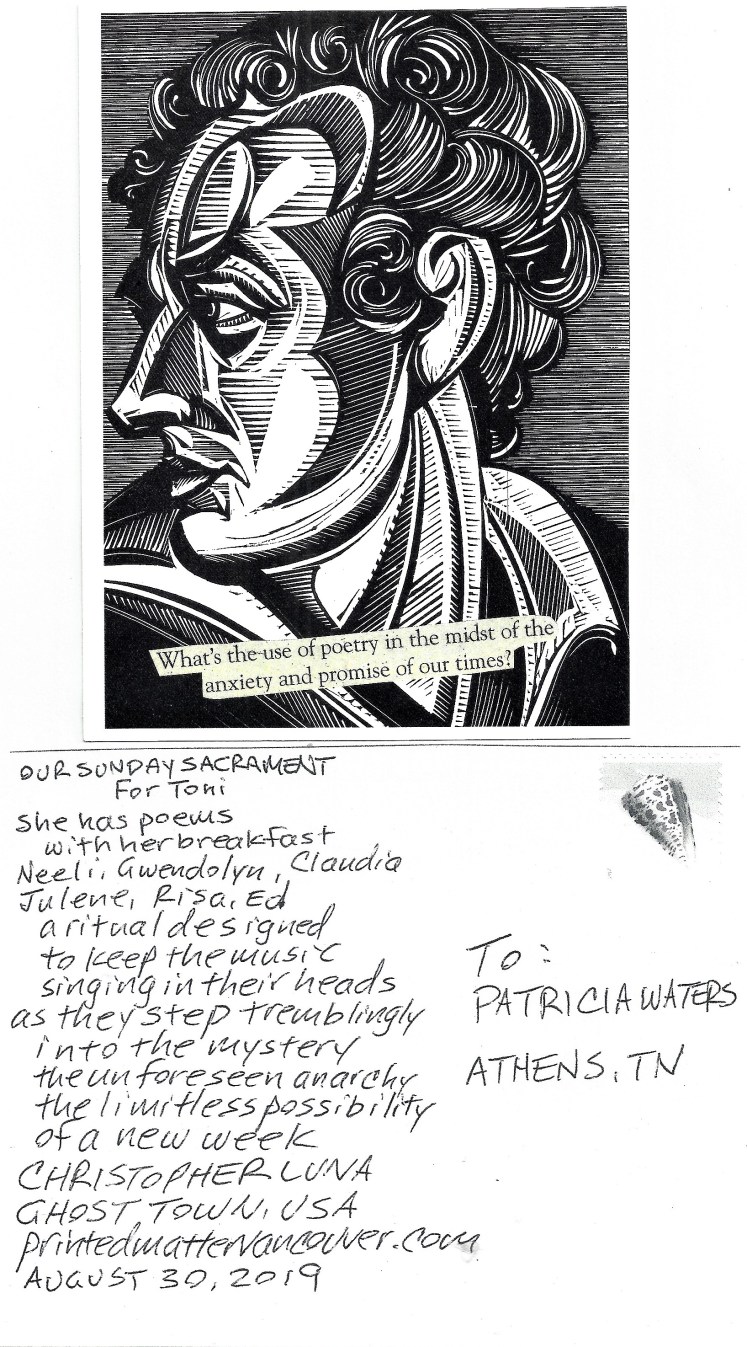 What's the use of poetry in the midst of the
anxiety and promise of our times?
OUR SUNDAY SACRAMENT
For Toni
She has poems
with her breakfast
Neeli, Gwendolyn, Claudia
Julene, Risa, Ed
a ritual designed
to keep the music
singing in their heads
as they step tremblingly
into the mystery
the unforeseen anarchy
the limitless possibility
of a new week
CHRISTOPHER LUNA
GHOST TOWN, USA
printedmattervancouver.com
AUGUST 30, 2019
To:
PATRICIA WATERS
ATHENS, TN